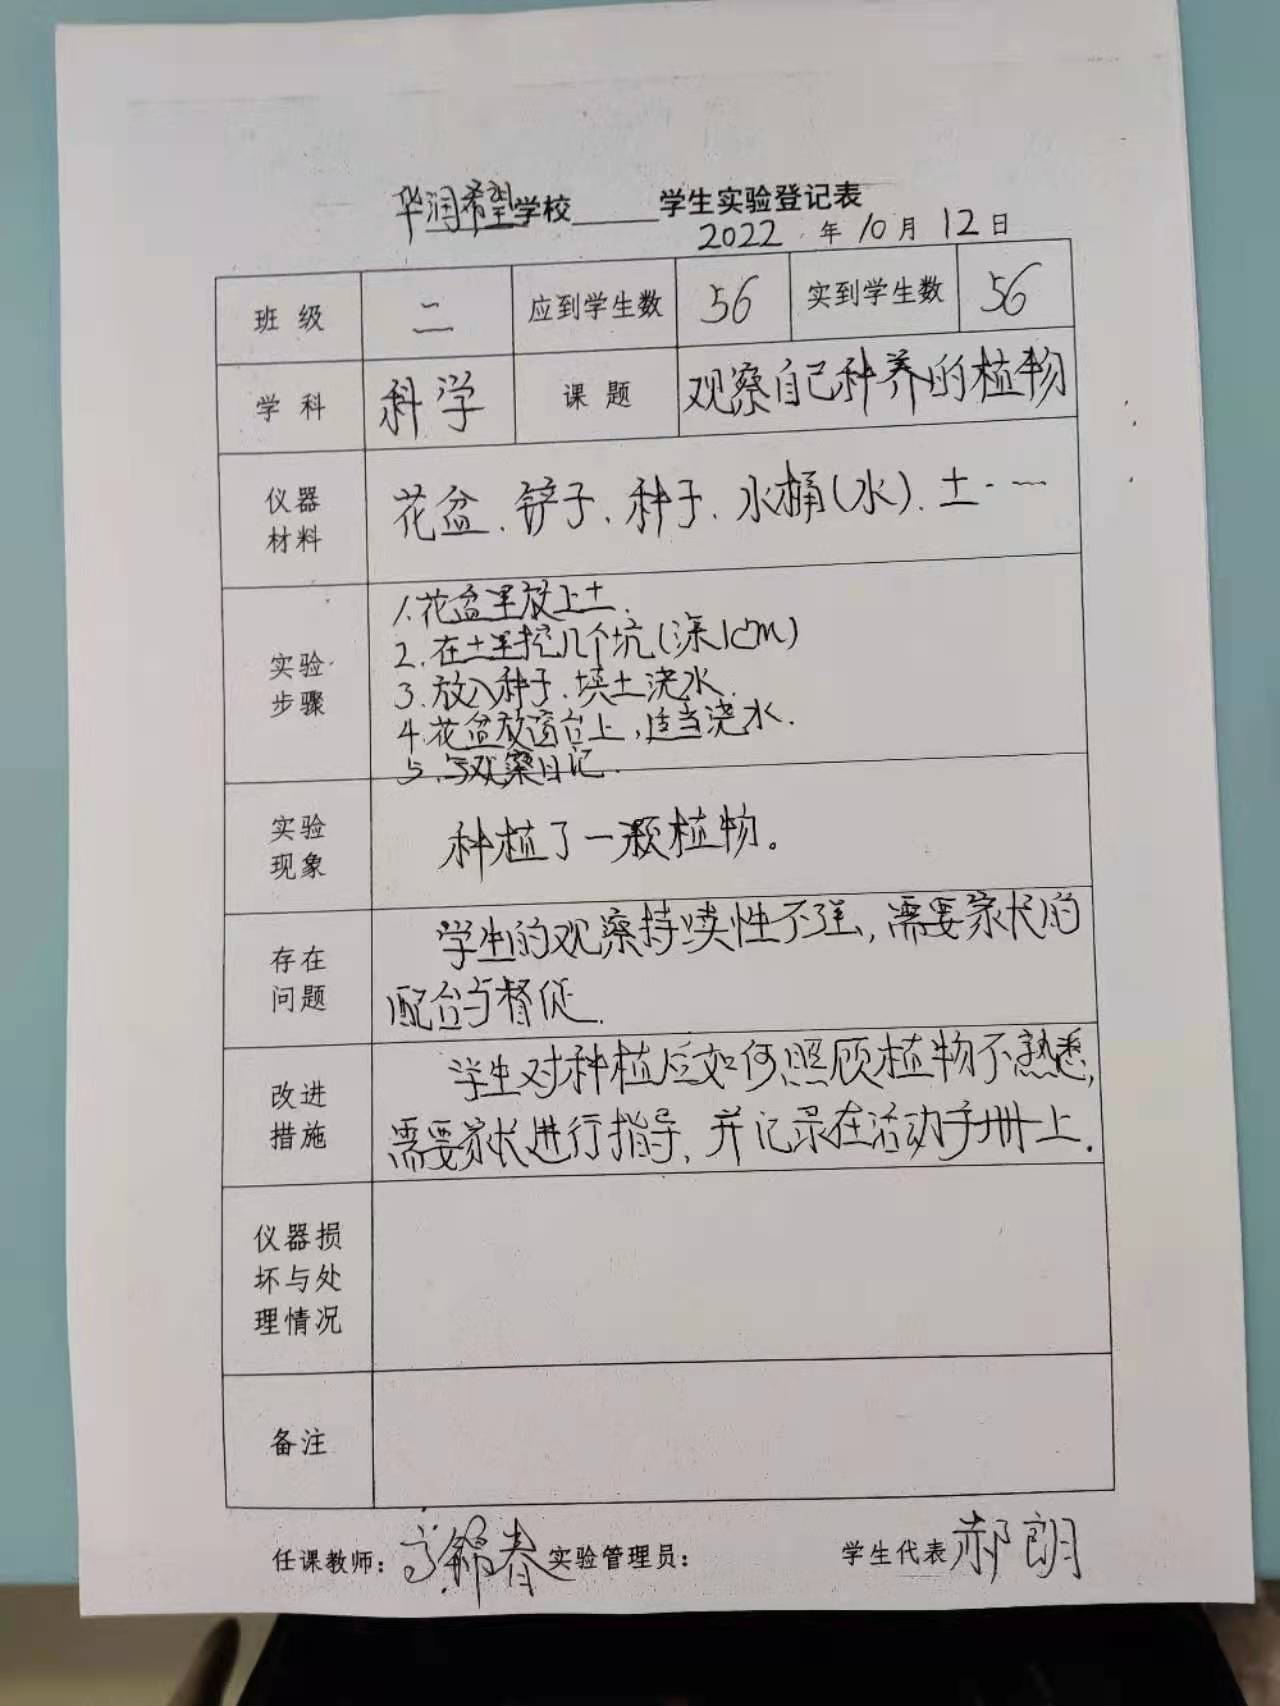 华润希望学校______学生实验登记表
2022 年 10 月 12 日
班 级 二 应到学生数 56 实到学生数 56
学 科 科学 课 题 观察自己种养的植物
仪器
材料
花盆、铲子、种子、水桶(水)、土……
实验
步骤
1.花盆里放上土.
2.在土里挖几个坑(深1cm)
3.放入种子.填土浇水.
4.花盆放窗台上,适当浇水.
5.写观察日记.
实验
现象
种植了一颗植物。
存在
问题
学生的观察持续性不强,需要家长的
配合与督促.
改进
措施
学生对种植后如何照顾植物不熟悉,
需要家长进行指导,并记录在活动手册上.
仪器损
坏与处
理情况
备注
任课教师: 春 实验管理员: 学生代表 郝朗